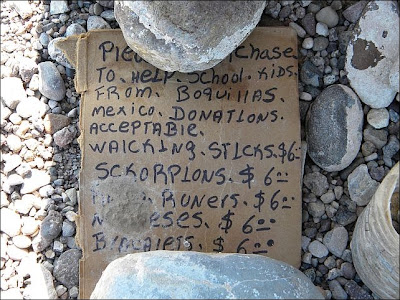 chase
TO. HELP. SCHOOL. KIDS.
FROM. BOQUILLAS.
MEXICO. DONATIONS.
ACCEPTABLE.
WALCKING. STICKS. $6=
SCKORPIONS. $ 6=
RUNERS. $ 6=
$ 6=
$ 6=